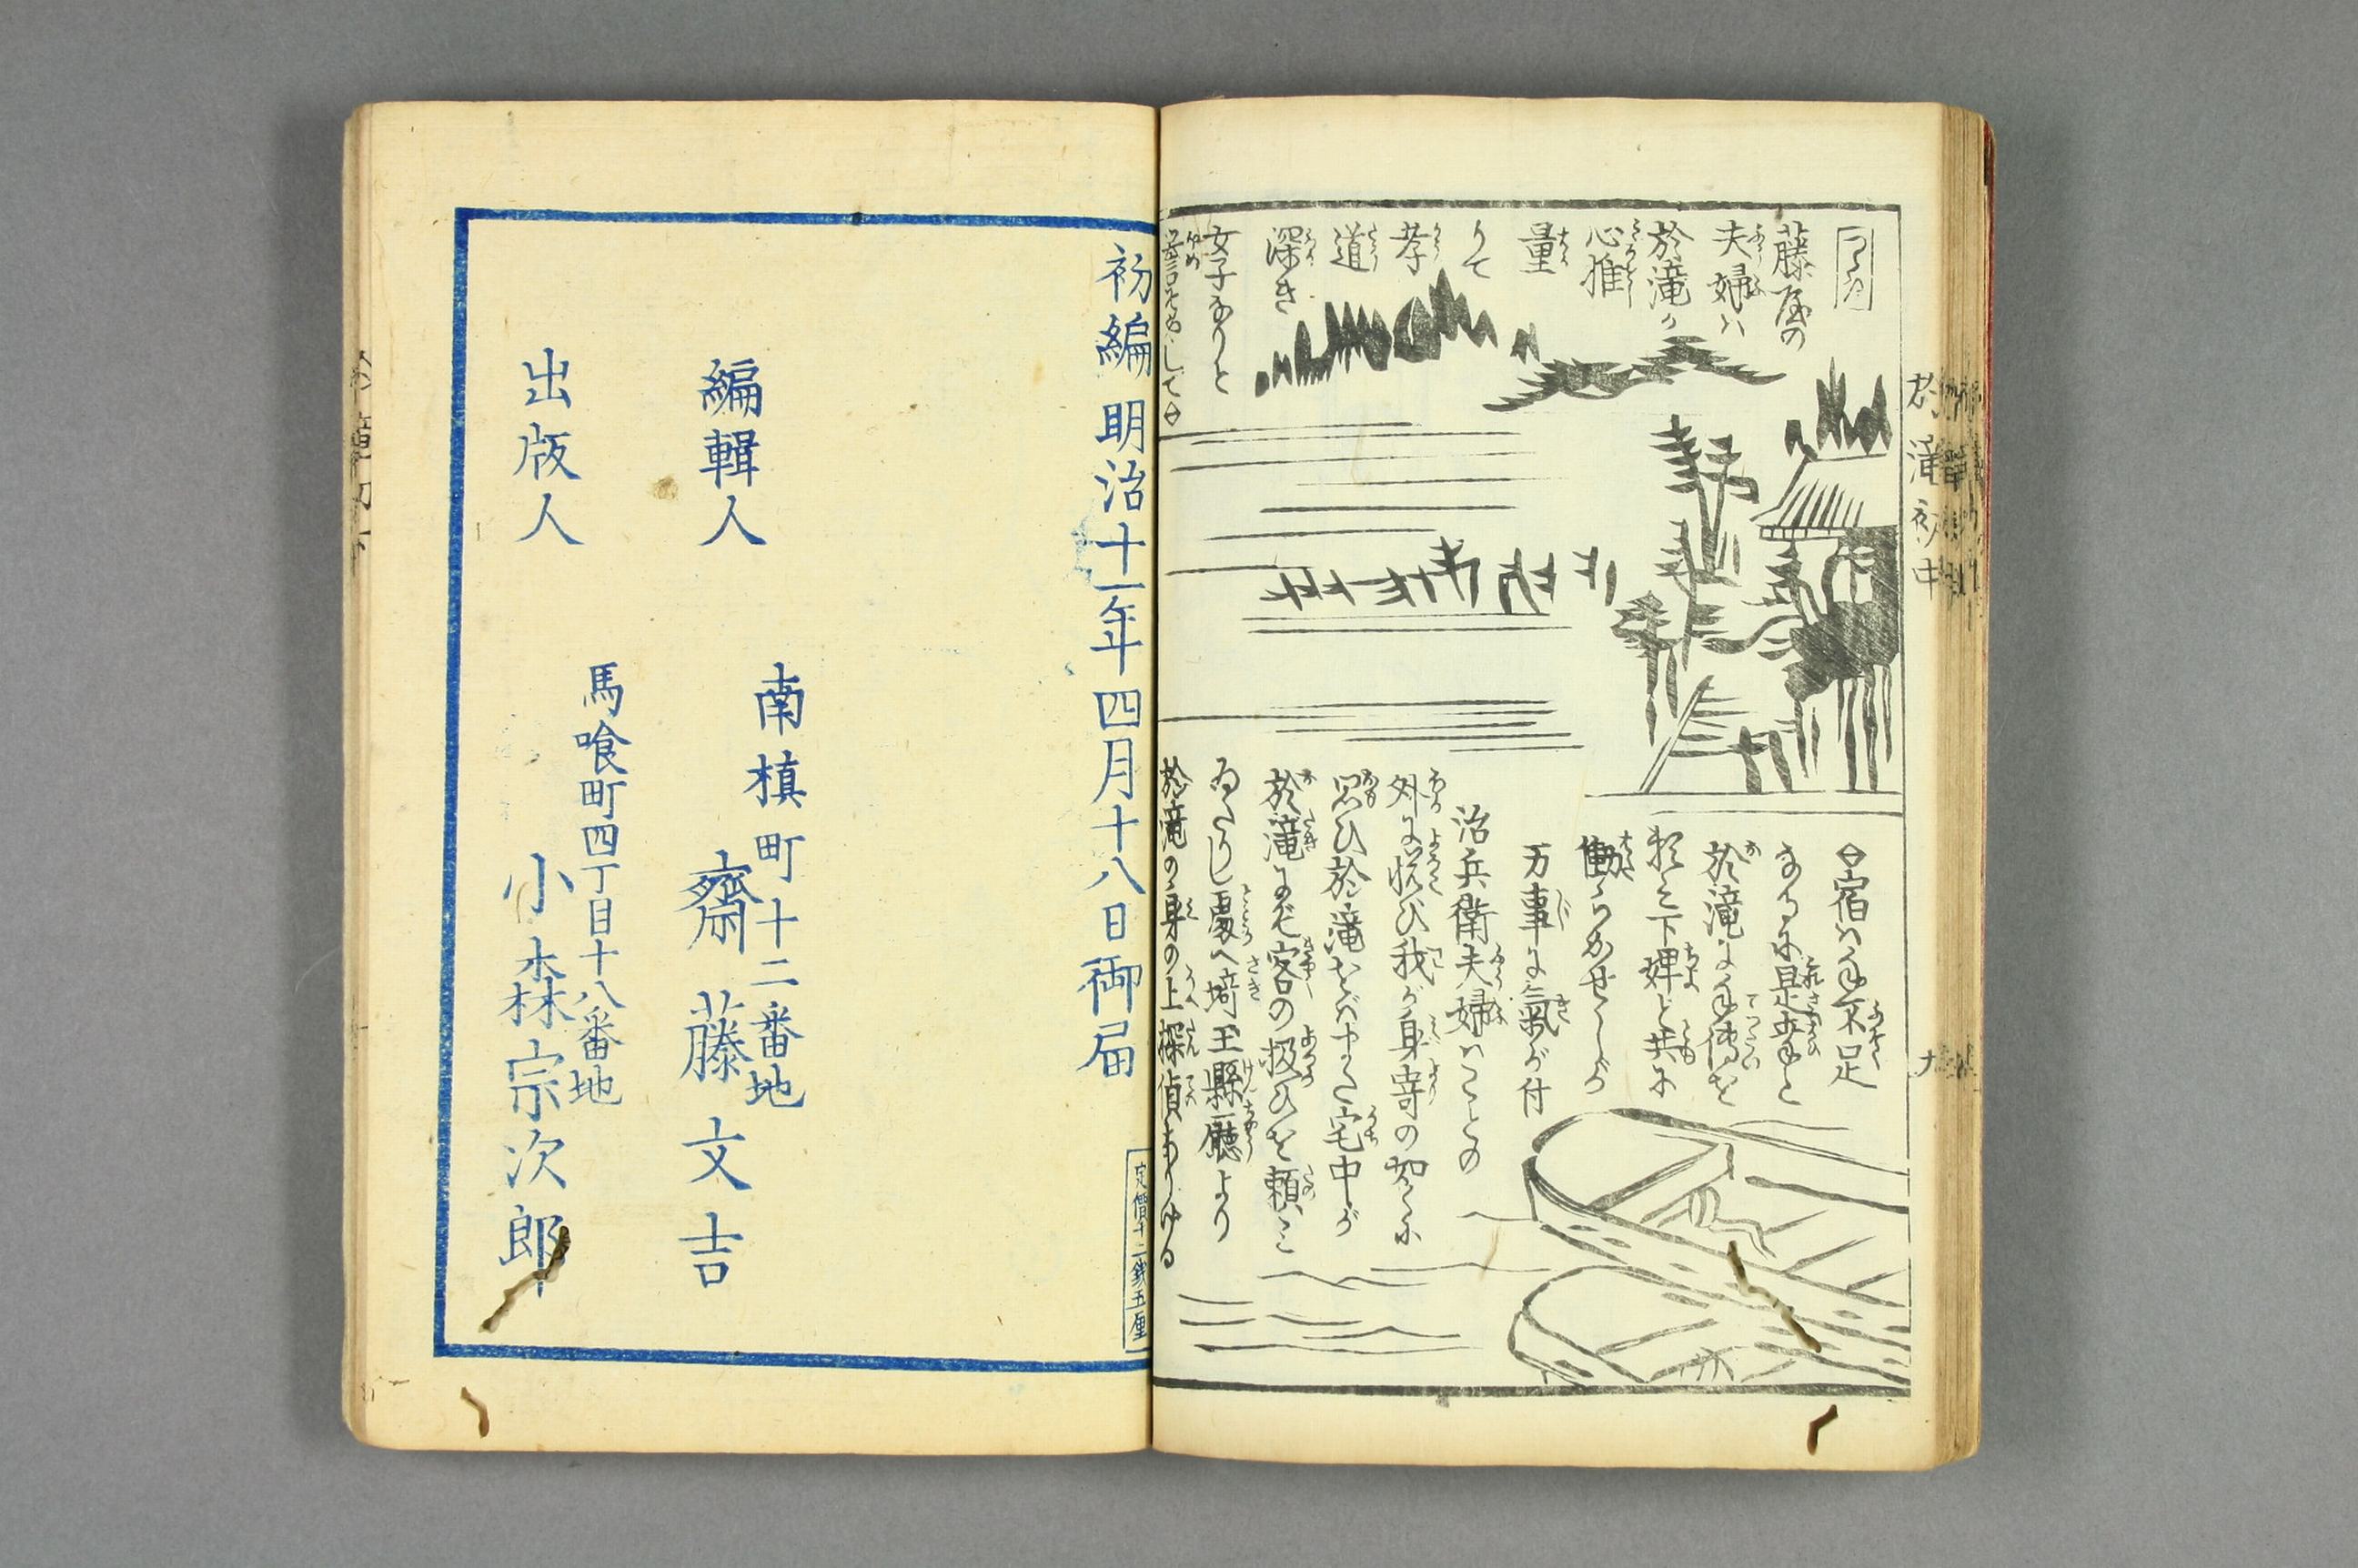 藤屋の
夫婦ハ
於滝が
心推
量
りて
孝
道
深き
女子なりと
宿ハ手不足
なるに是幸と
於滝に手傳を
頼み下婢と共に
働らかせしが
万事に氣が付
治兵衛夫婦ハことの
外に悦び我が身寄の如くに
思ひ於滝をバ宅中が
於滝にて客の扱ひを頼み
ゐたりし處へ埼玉縣廳より
於滝の身の上探偵ありける
於滝初中
初編 明治十一年四月十八日御届
定價十二銭五厘
南槙町十二番地
編輯人 齋藤文吉
馬喰町四丁目十八番地
出版人 小森宗次郎